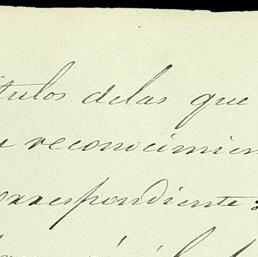 títulos delas que
reconocimien
correspondiente